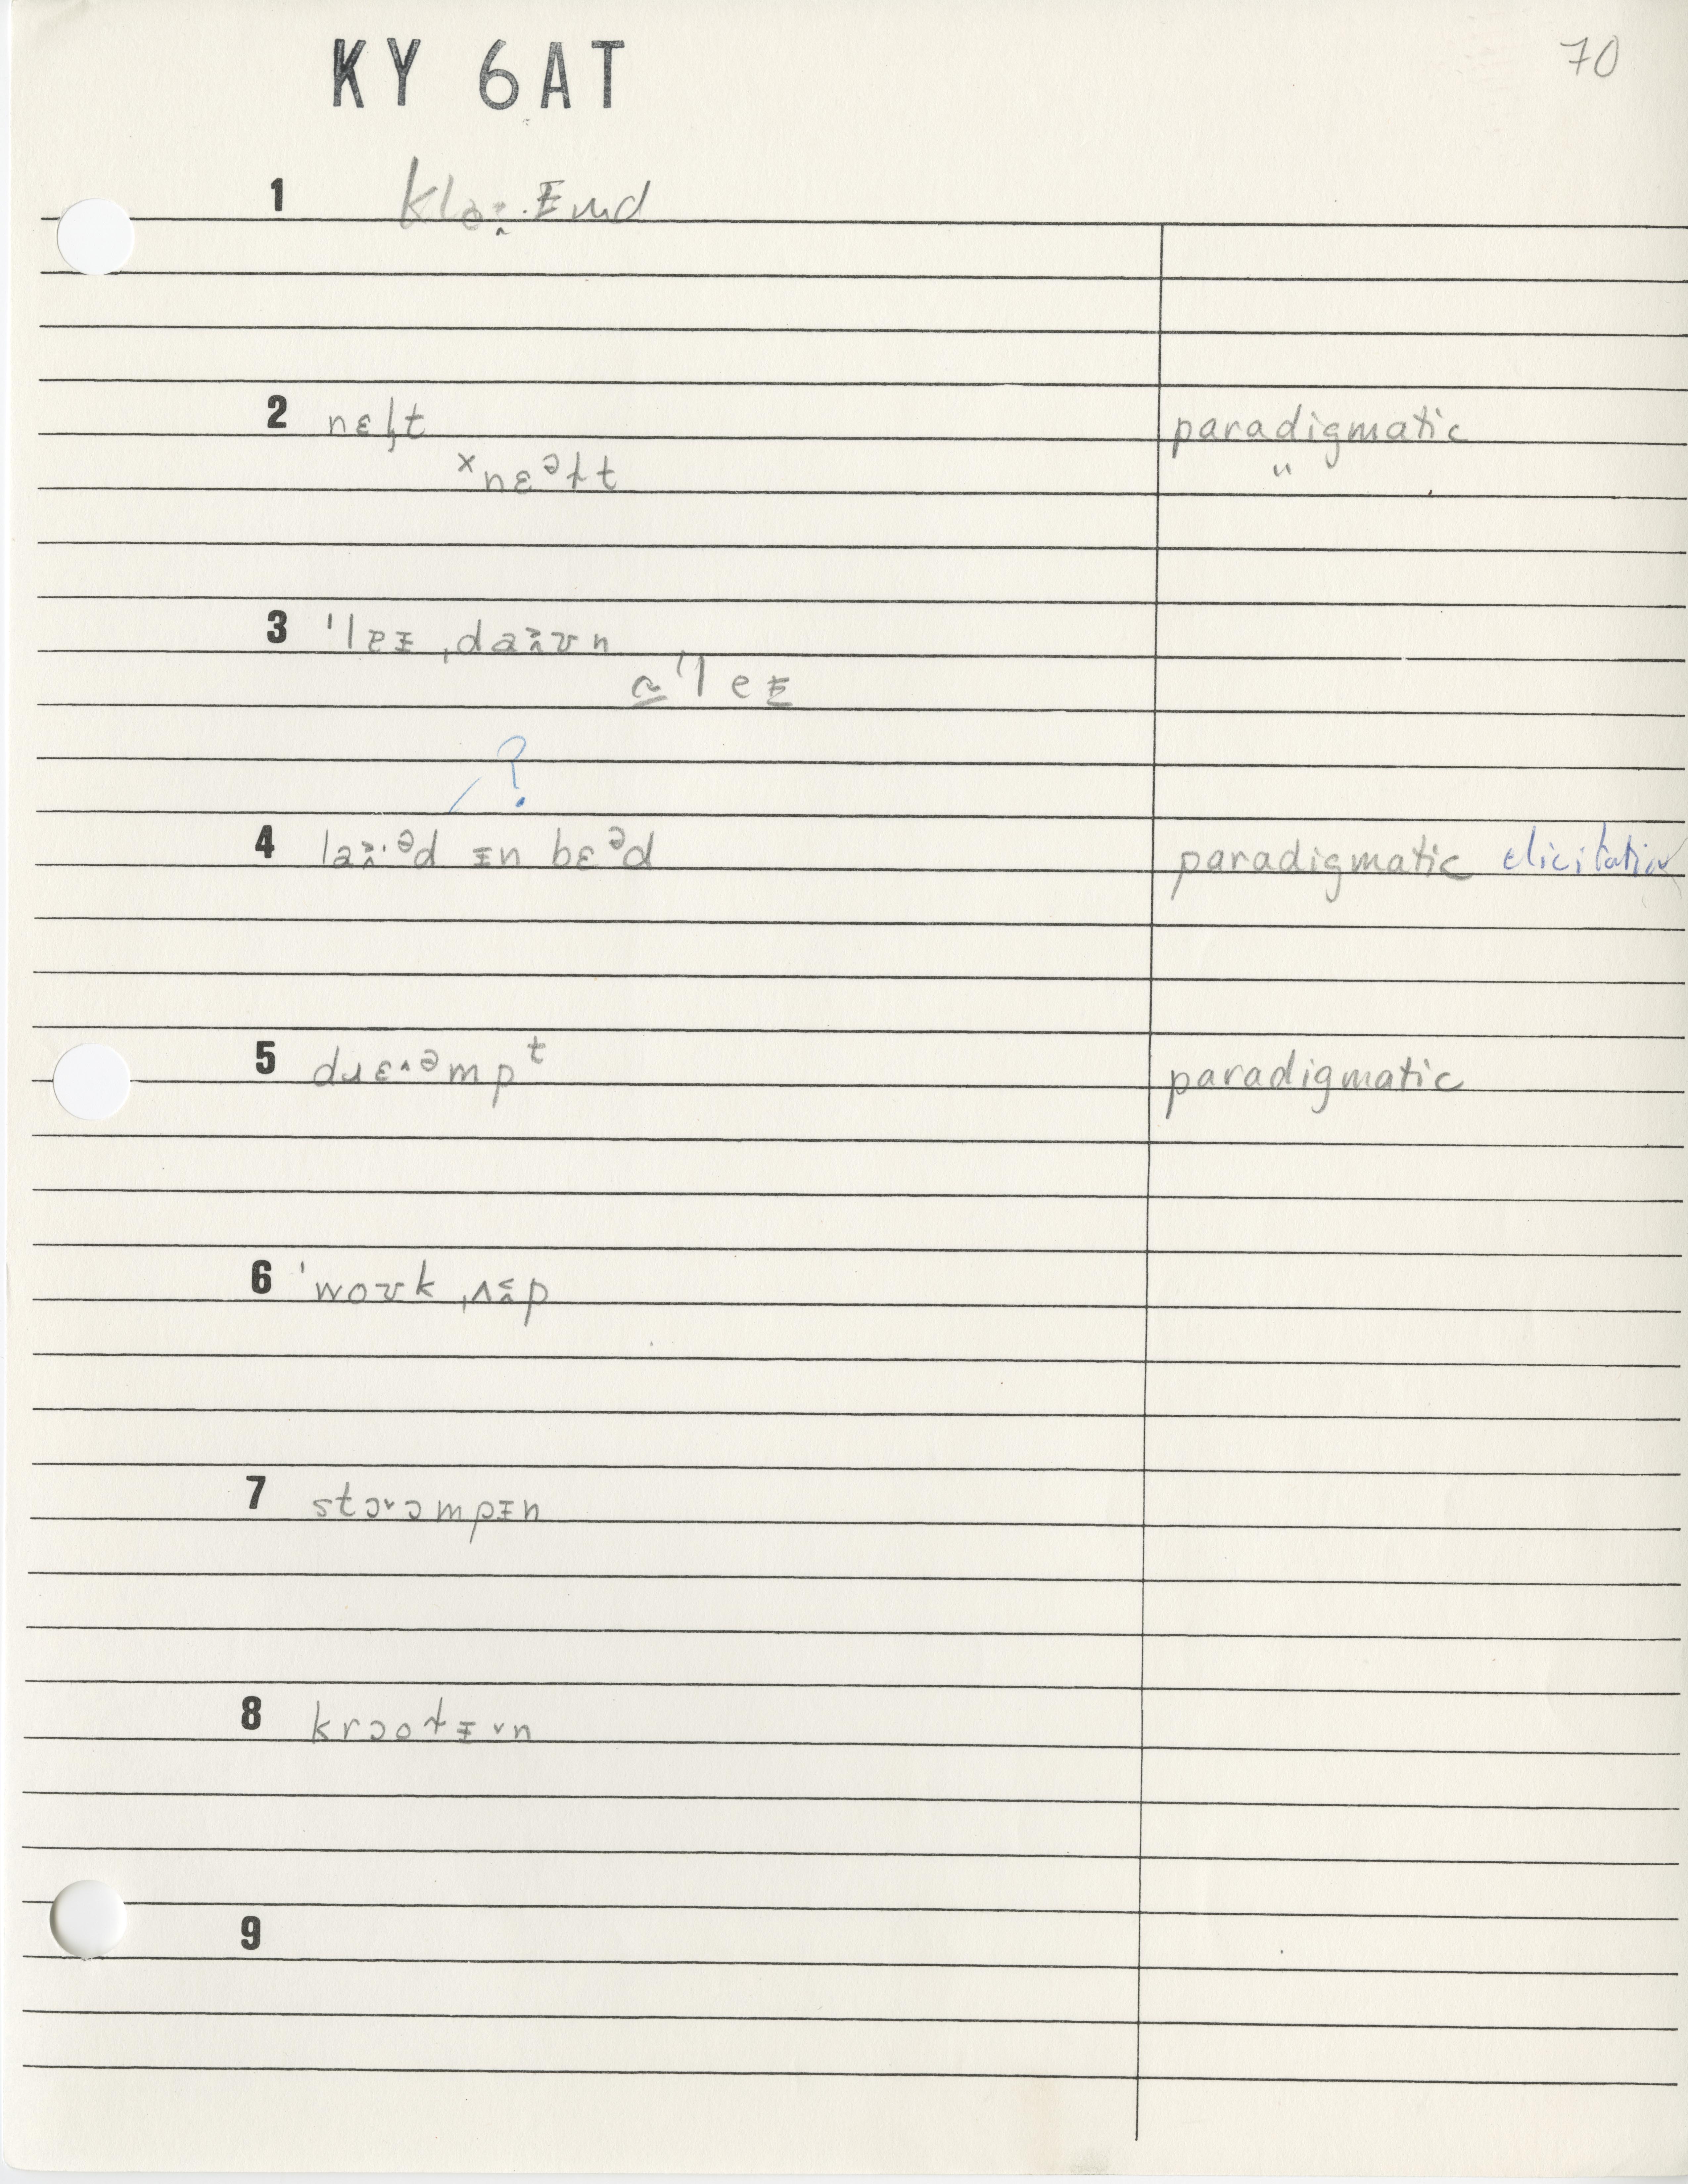 KY 6AT
70
1 klaɪ̯.ᵻmd
2 nɛl̡t paradigmatic
×nɛᵊɫt "
3 ˈleᵻ ˌdaʊn
≃ ˈleᵻ
?
4 laɪ·ᵊd ᵻn bɛᵊd paradigmatic elicitation
5 dɹɛ˄ᵊmpᵗ paradigmatic
6 ˈwoʊk ˌʌp
7 stɔ˅ɔmpᵻn
8 krɔoɫᵻ˅n
9